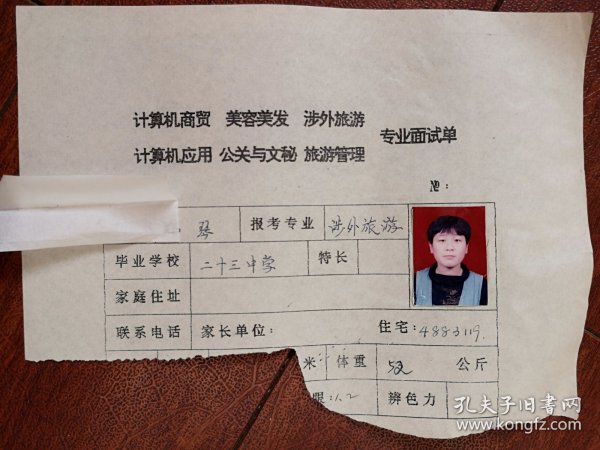 计算机商贸 美容美发 涉外旅游
专业面试单
计算机应用 公关与文秘 旅游管理
№:
琴 报考专业 涉外旅游
毕业学校 二十三中学 特长
家庭住址
联系电话 家长单位: 住宅:4883119.
米 体重 52 公斤
眼:1.2 辨色力
孔夫子旧书网
www.kongfz.com